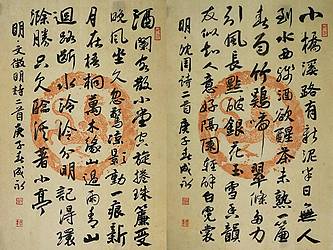 小橋溪路有新泥半日無人
到水西殘酒欲醒茶未熟一簾
春雨竹鷄啼 翠條多力
引風長點破銀花玉雪香韻
友似知人意好隔闌輕解白霓裳
明沈周詩二首庚子春成永
酒闌客散小堂空旋捲珠簾受
晚風坐久忽驚涼影動一痕新
月在梧桐 萬木後山過雨青山
迴路斷水泠泠分明記得環
滁勝只欠臨小亭
明文徵明詩二首庚子春成永